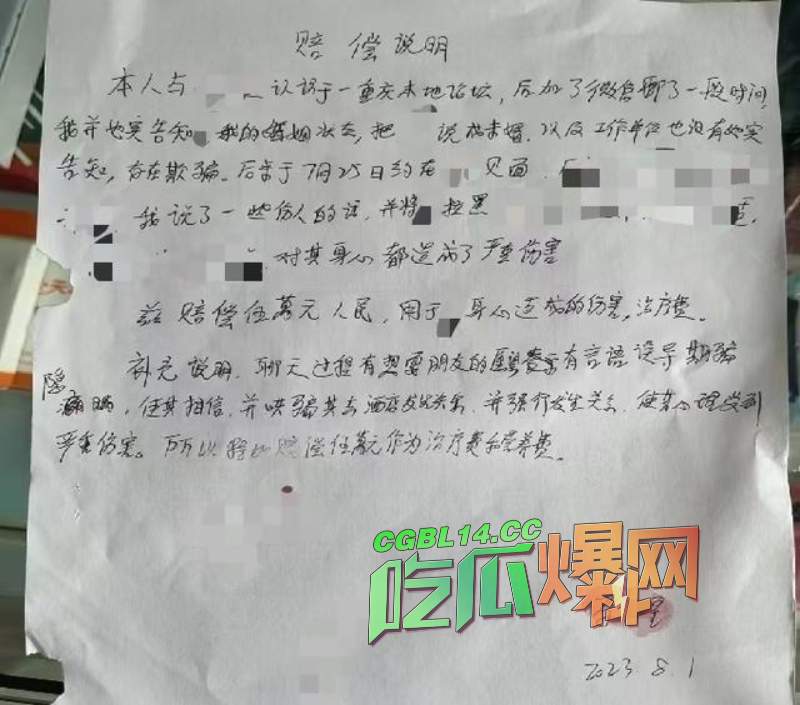 赔偿说明
本人与 认识于一重庆本地论坛，后加了微信聊了一段时间，
我并如实告知 我的婚姻状态，把 说成未婚，以及工作单位也没有如实
告知，存在欺骗。后来于7月25日约在 见面，
我说了一些伤人的话，并将 拉黑
对其身心都造成了严重伤害
兹赔偿伍萬元人民，用于 身心造成的伤害，治疗费。
补充说明，聊天过程有想要朋友的 有言语误导 欺骗
隐瞒，使其相信，并哄骗其去酒店发生关系，并强行发生关系，使其心理受到
严重伤害。 赔偿伍萬元作为治疗费和营养费。
CGBL14.CC
吃瓜爆网
2023.8.1